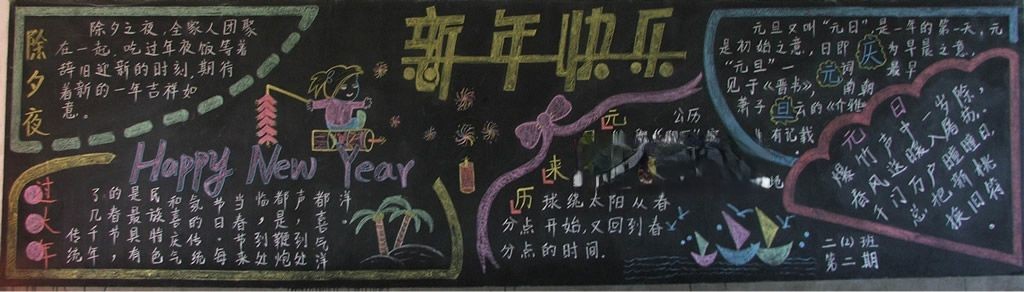 新年快乐
除夕夜
除夕之夜,全家人团聚
在一起,吃过年夜饭等着
辞旧迎新的时刻,期待
着新的一年吉祥如
意。
Happy New Year
过大年
传统
了几千年
的春节,
是最具有
民族特色
和喜庆气
氛的传统
节日。每
当春节来
临,到处
都是鞭炮
声,到处
都喜气洋
洋。
元
来
历
公历
地
球绕太阳从春
分点开始,又回到春
分点的时间.
元旦又叫“元日”是一年的第一天,元
是初始之意,日即为早晨之意.
“元旦”一词最早
见于《晋书》南朝
萧子云的《介雅
》有记载
庆
元
旦
元日
爆竹声中一岁除,
春风送暖入屠苏.
千门万户瞳瞳日.
总把新桃
换旧符.
二(2)班
第二期